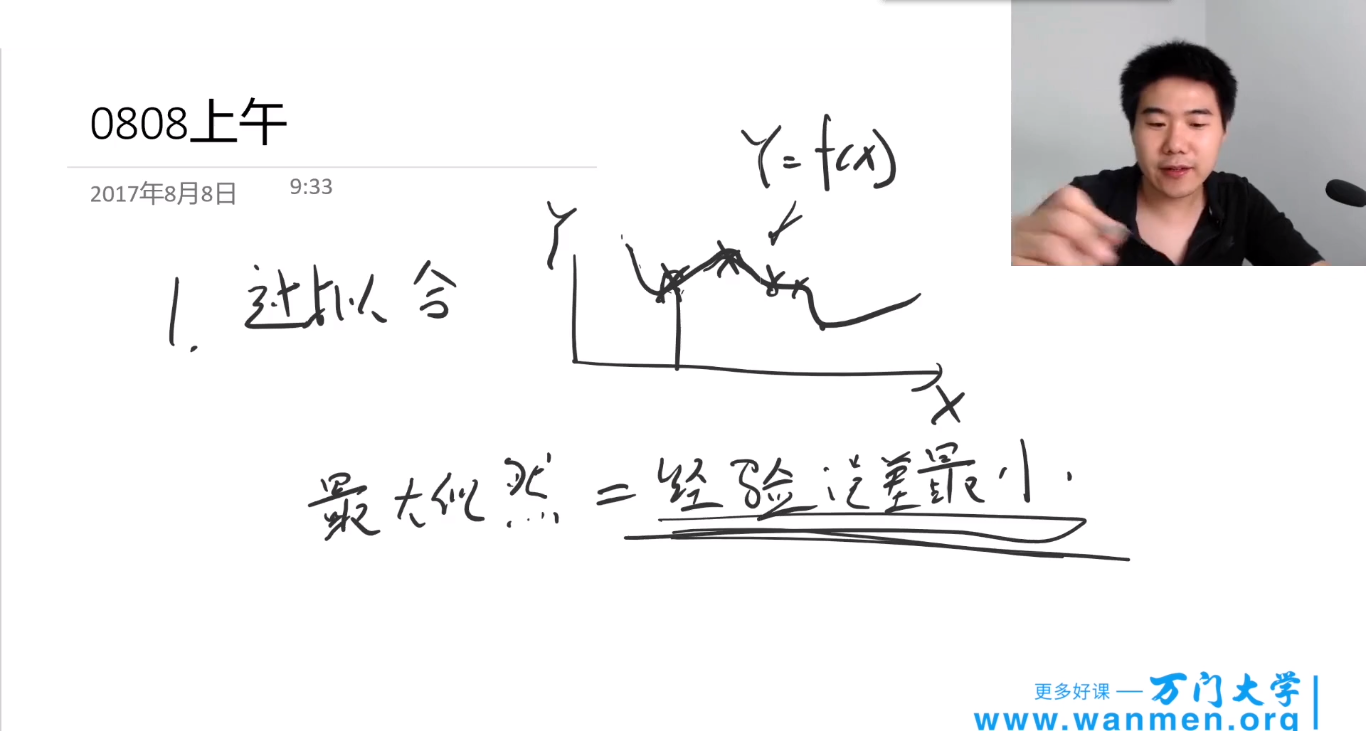 0808上午
2017年8月8日 9:33
Y=f(x)
Y
1. 过拟合
X
最大似然=经验误差最小.
更多好课一万门大学
www.wanmen.org